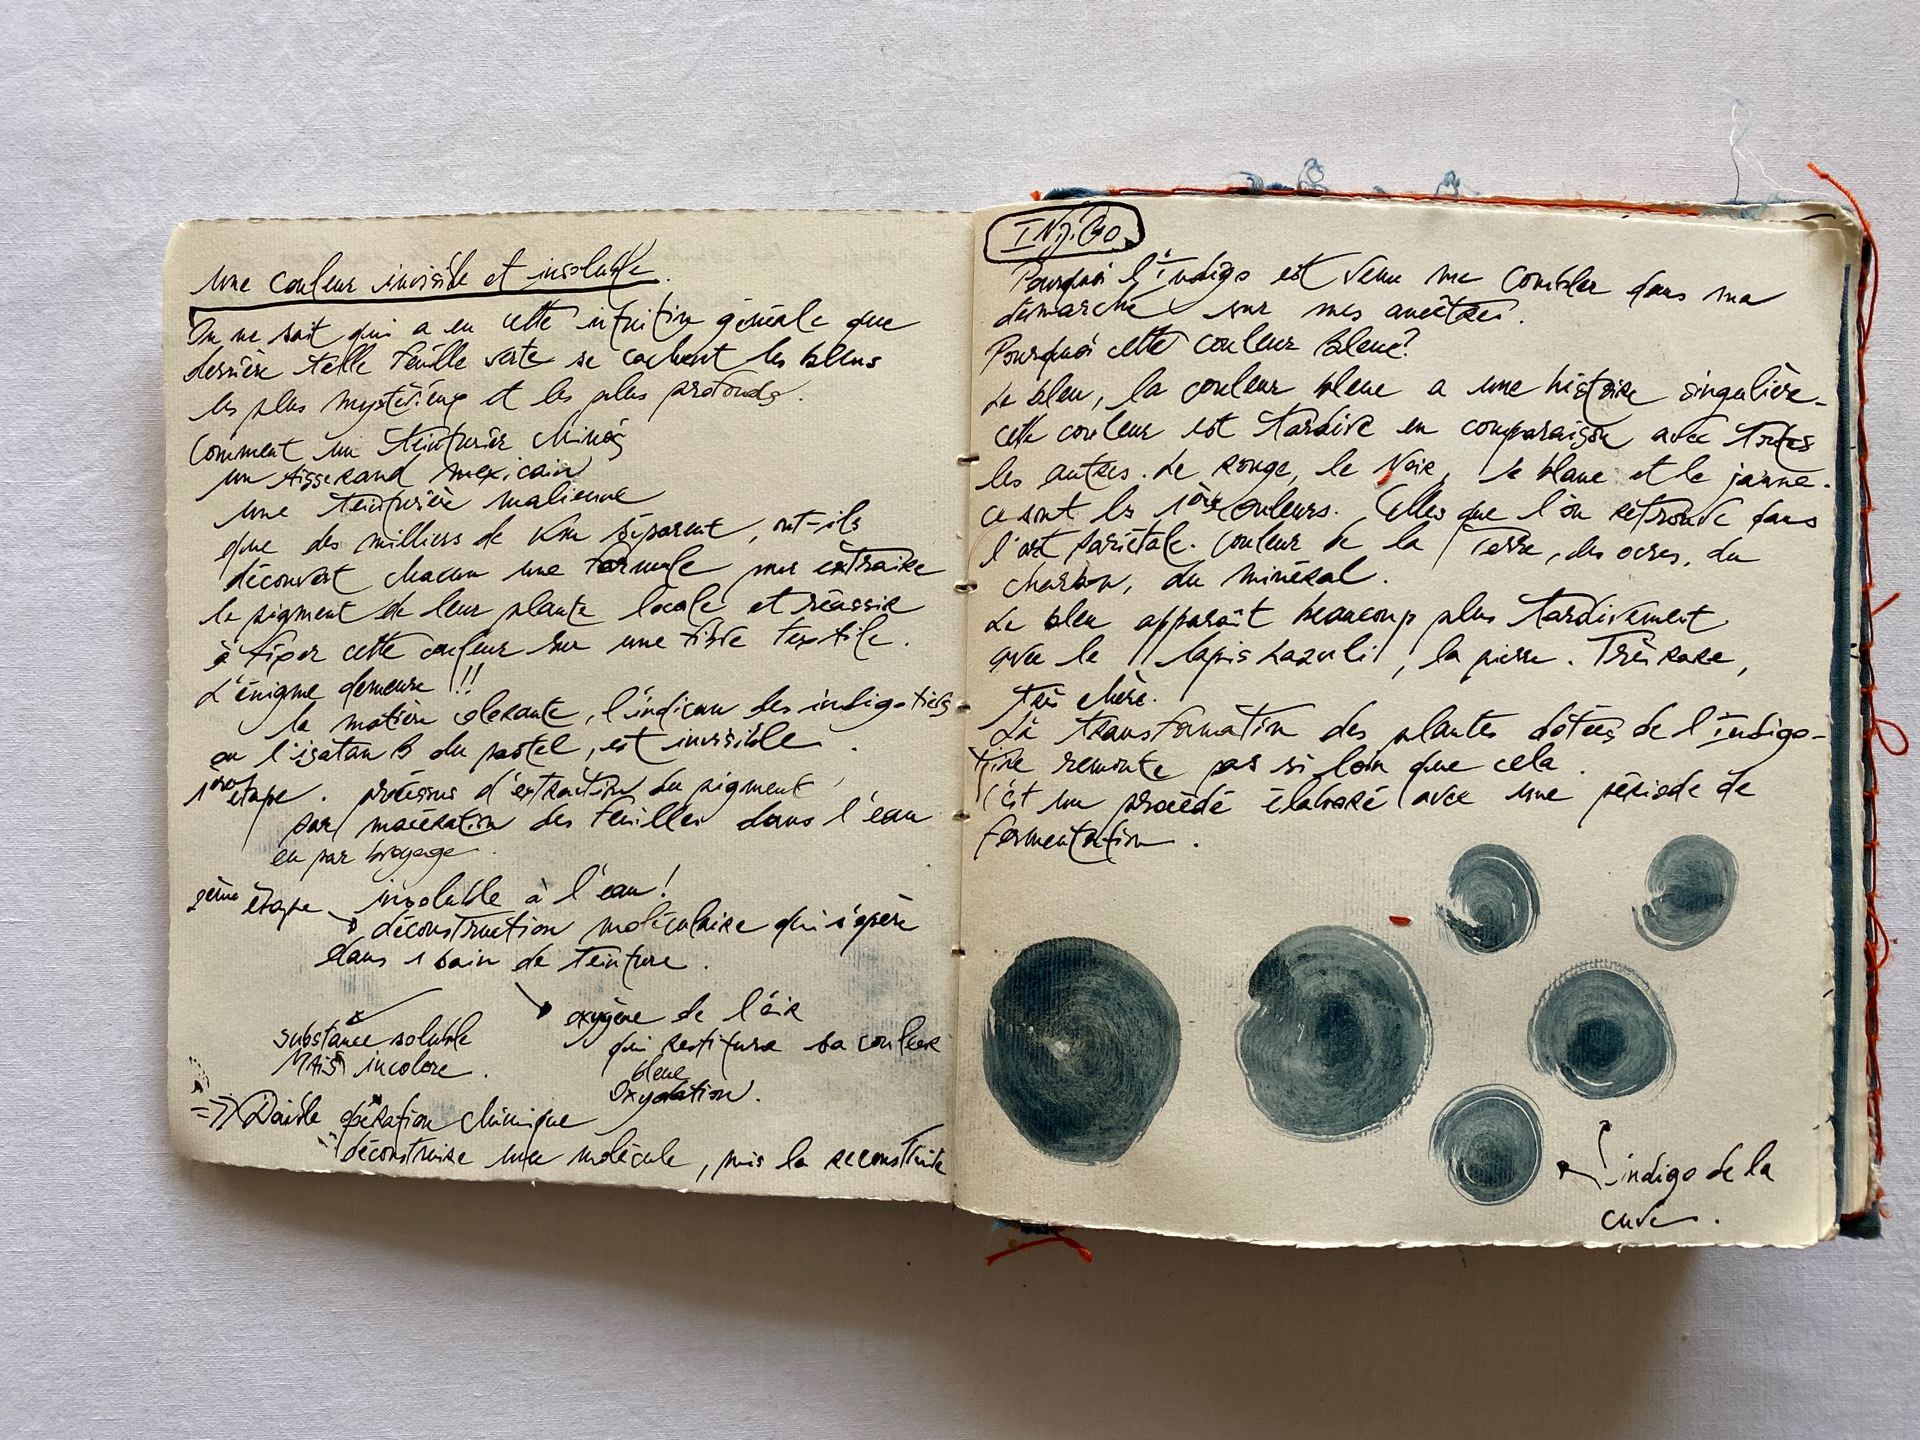 Une couleur invisible et insoluble.
On ne sait qui a eu cette intuition géniale que
derrière telle feuille verte se cachent les bleus
les plus mystérieux et les plus profonds.
Comment un teinturier chinois
un tisserand mexicain
une teinturière malienne
que des milliers de Km séparent, ont-ils
découvert chacun une formule pour extraire
le pigment de leur plante locale et réussir
à fixer cette couleur sur une fibre textile.
L'énigme demeure !!!
la matière colorante, l'indican des indigotiers
ou l'isatan B du pastel, est invisible.
1ère étape. processus d'extraction du pigment
par macération des feuilles dans l'eau
ou par broyage.
2ème étape insoluble à l'eau!
déconstruction moléculaire qui s'opère
dans 1 bain de teinture.
substance soluble
MAIS incolore.
oxygène de l'air
qui restitura sa couleur
bleue
oxydation.
=> Double opération chimique
déconstruire une molécule, puis la reconstruire
INDIGO
Pourquoi l'Indigo est venu me combler dans ma
démarche sur mes ancêtres.
Pourquoi cette couleur bleue?
Le bleu, la couleur bleue a une histoire singulière.
cette couleur est tardive en comparaison avec toutes
les autres. Le rouge, le Noir, le blanc et le jaune.
ce sont les 1ères couleurs. Celles que l'on retrouve dans
l'art pariétale. Couleur de la Terre, des ocres, du
charbon, du minéral.
Le bleu apparaît beaucoup plus tardivement
avec le lapis Lazuli, la pierre. Très rare,
très chère.
La transformation des plantes dotées de l'Indigo-
tine remonte pas si loin que cela.
C'est un procédé élaboré avec une période de
fermentation.
indigo de la
cuve.